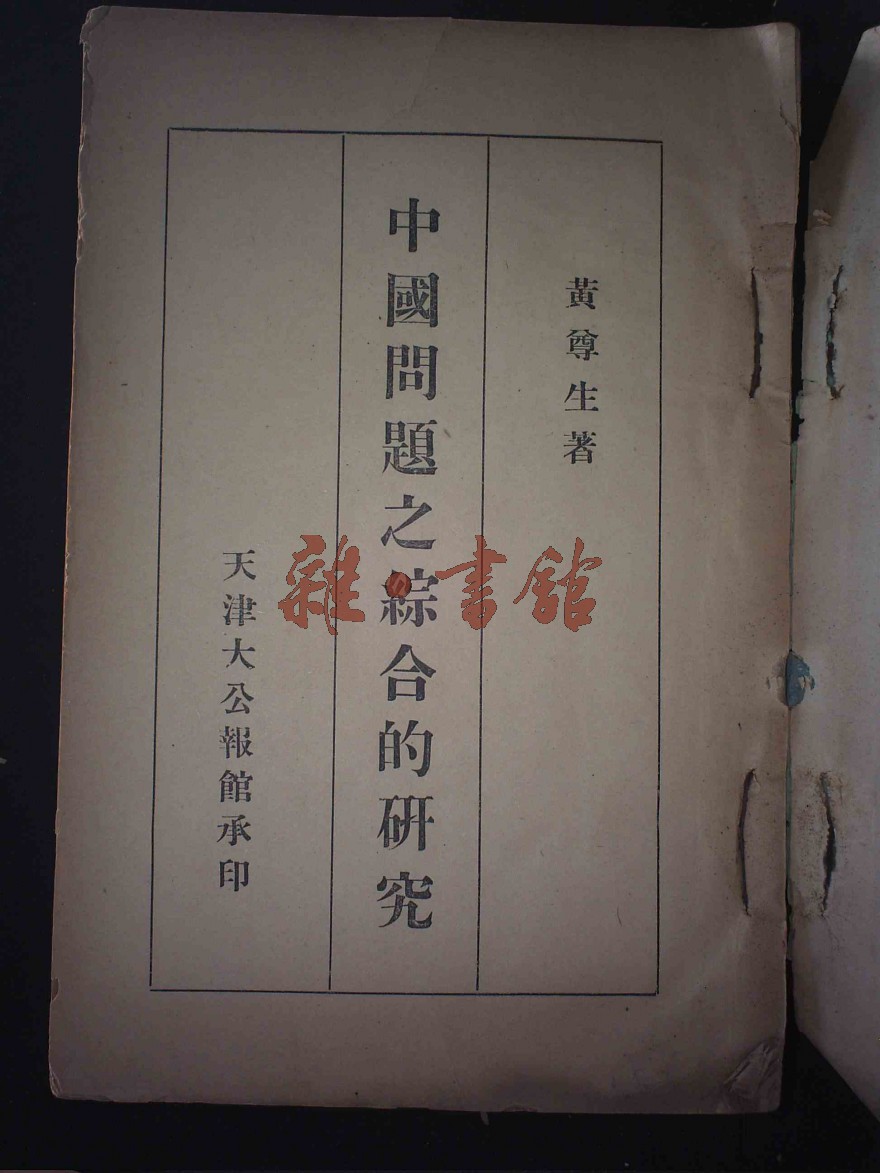 黃尊生著
中國問題之綜合的研究
天津大公報館承印
雜書館